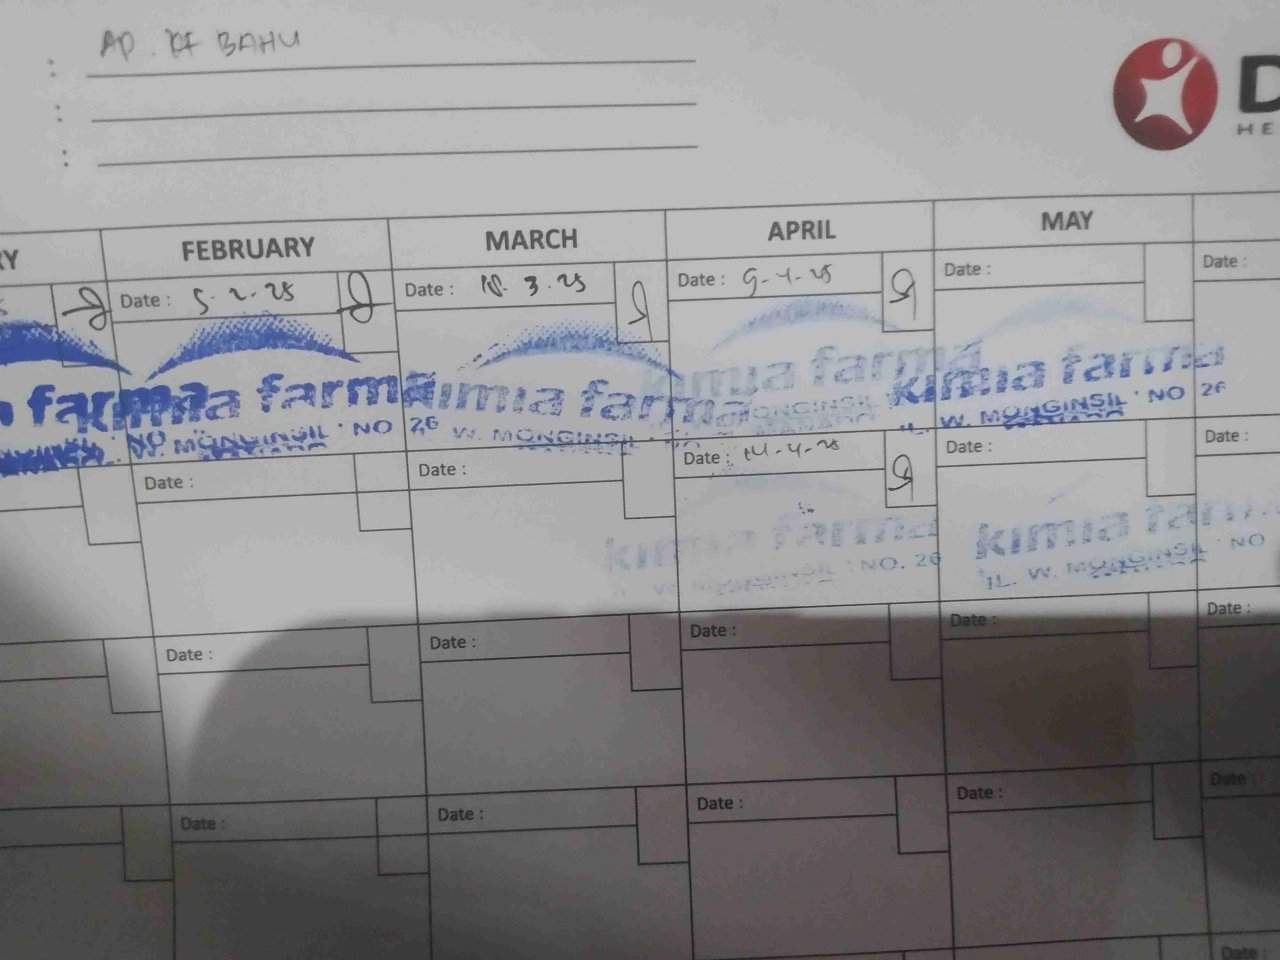 : AP. KF BAHU
:
:
D
HE
RY FEBRUARY MARCH APRIL MAY
Date : 5-2-25 Date : 3.25 Date : 9-4-25 Date : Date :
farma kimia farma kimia farma kimia farma kimia farma
W. MONGINSIL NO 26 W. MONGINSIL MONGINSIL JL. W. MONGINSIL NO 26
Date : Date : Date : 14-4-25 Date : Date :
kimia farma kimia farma
W. MONGINSIL NO. 26 JL. W. MONGINSIL NO
Date : Date : Date : Date : Date :
Date : Date : Date : Date : Date
Date :